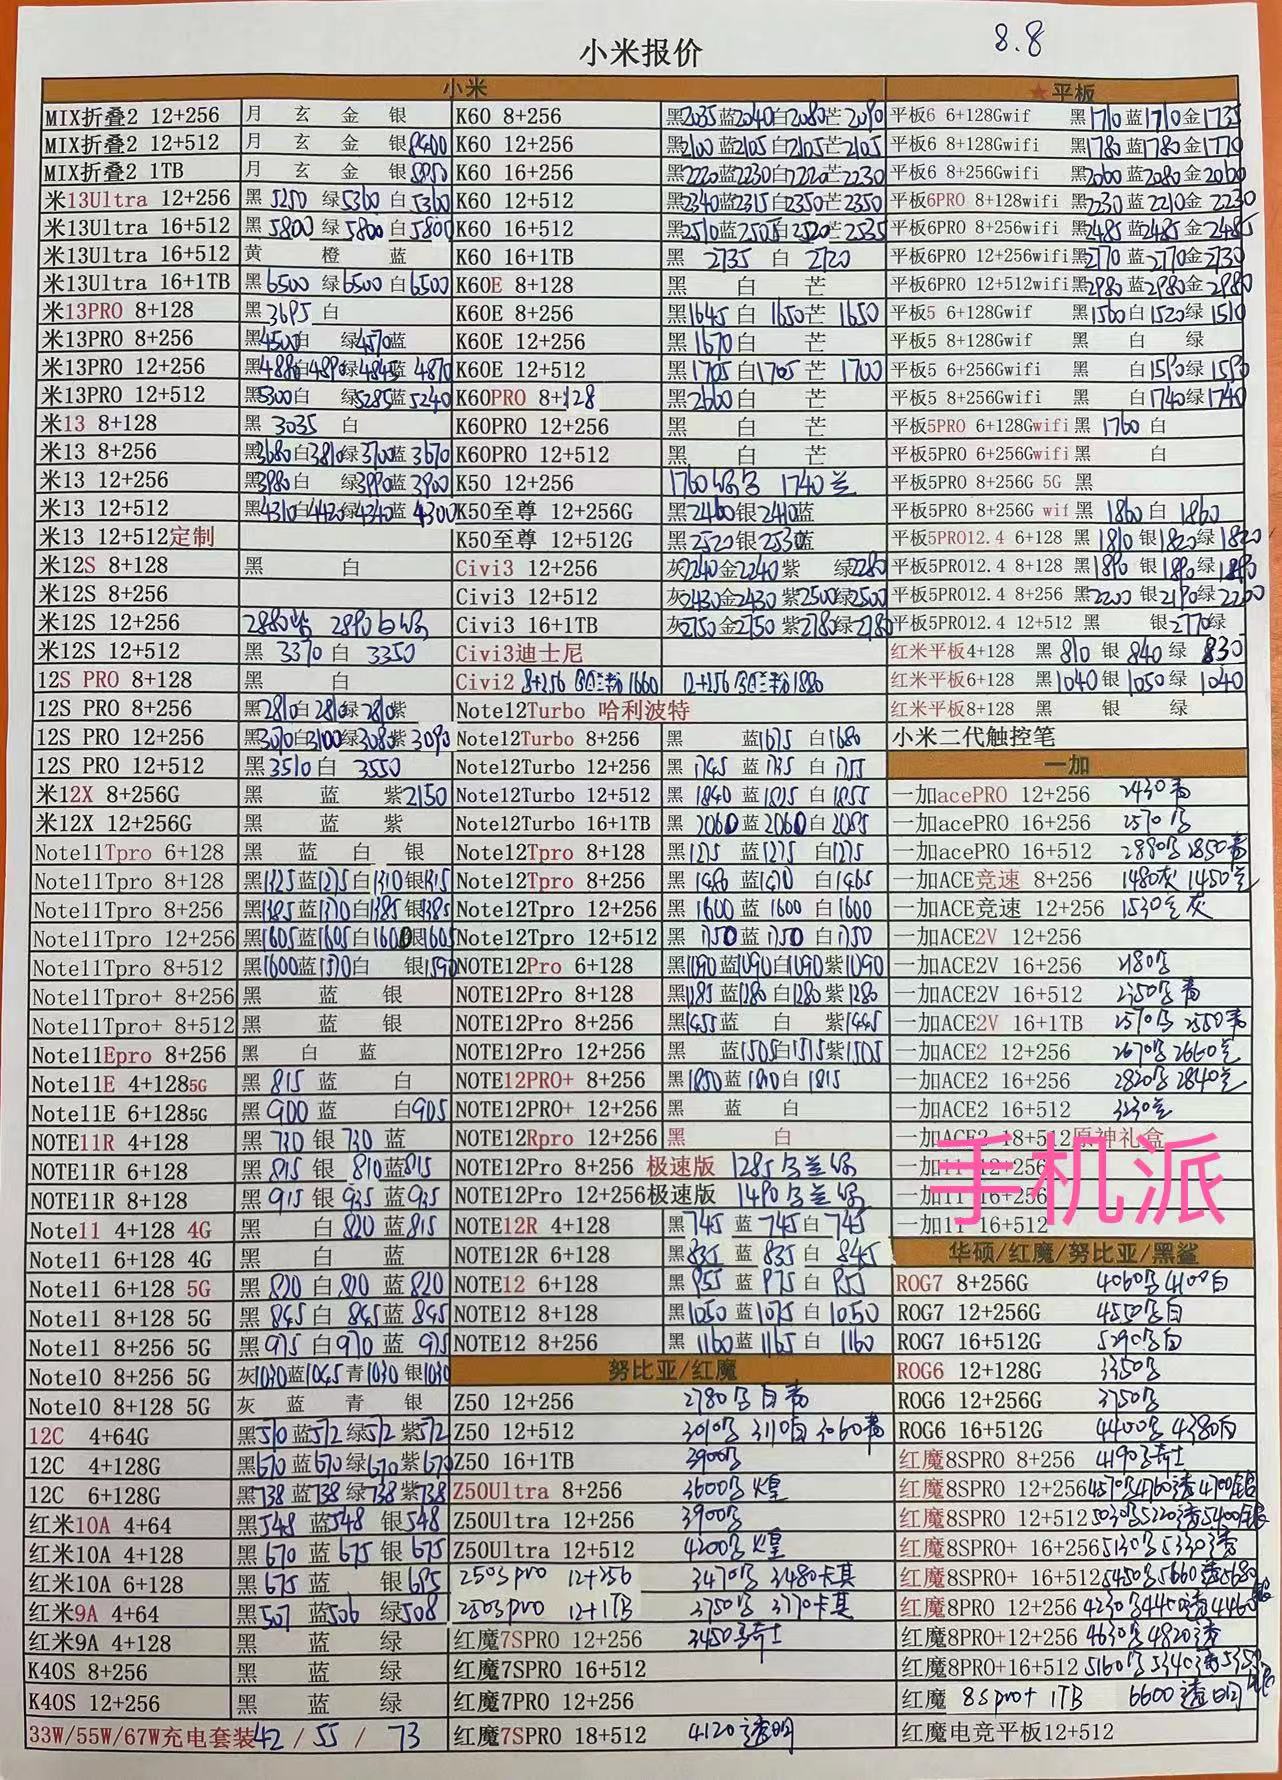 小米报价 8.8
小米
MIX折叠2 12+256 月 玄 金 银
MIX折叠2 12+512 月 玄 金 银8400
MIX折叠2 1TB 月 玄 金 银8950
米13Ultra 12+256 黑5250 绿5360 白5360
米13Ultra 16+512 黑5800 绿5800 白5800
米13Ultra 16+512 黄 橙 蓝
米13Ultra 16+1TB 黑6500 绿6500 白6500
米13PRO 8+128 黑3695 白
米13PRO 8+256 黑4500白 绿4570蓝
米13PRO 12+256 黑4880白4890绿4845蓝 4870
米13PRO 12+512 黑5300白 绿5285蓝5240
米13 8+128 黑 3035 白
米13 8+256 黑3680白3810绿3700蓝3670
米13 12+256 黑3980白 绿3990蓝3900
米13 12+512 黑4310白4420绿4340蓝4300
米13 12+512定制
米12S 8+128 黑 白
米12S 8+256
米12S 12+256 2880紫 2890白绿
米12S 12+512 黑 3370 白 3350
12S PRO 8+128 黑 白
12S PRO 8+256 黑2810白2810绿2810紫
12S PRO 12+256 黑3070白3100绿3080紫3090
12S PRO 12+512 黑3510白 3550
米12X 8+256G 黑 蓝 紫2150
米12X 12+256G 黑 蓝 紫
Note11Tpro 6+128 黑 蓝 白 银
Note11Tpro 8+128 黑1325蓝1275白1310银1315
Note11Tpro 8+256 黑1385蓝1370白1385银1385
Note11Tpro 12+256 黑1605蓝1605白1600银1605
Note11Tpro 8+512 黑1600蓝1570白 银1590
Note11Tpro+ 8+256 黑 蓝 银
Note11Tpro+ 8+512 黑 蓝 银
Note11Epro 8+256 黑 白 蓝
Note11E 4+1285G 黑 815 蓝 白
Note11E 6+1285G 黑 900 蓝 白905
NOTE11R 4+128 黑 730 银 730 蓝
NOTE11R 6+128 黑 815 银 810蓝815
NOTE11R 8+128 黑 915 银 925 蓝925
Note11 4+128 4G 黑 白 820 蓝815
Note11 6+128 4G 黑 白 蓝
Note11 6+128 5G 黑 820 白 810 蓝 820
Note11 8+128 5G 黑 845 白 845 蓝845
Note11 8+256 5G 黑 975 白 970 蓝 975
Note10 8+256 5G 灰1030蓝1045青1030银1030
Note10 8+128 5G 灰 蓝 青 银
12C 4+64G 黑510 蓝512 绿512 紫512
12C 4+128G 黑670 蓝670 绿670紫670
12C 6+128G 黑738 蓝738 绿738紫738
红米10A 4+64 黑548 蓝548 银548
红米10A 4+128 黑 670 蓝 675 银 675
红米10A 6+128 黑675 蓝 银685
红米9A 4+64 黑507 蓝506 绿508
红米9A 4+128 黑 蓝 绿
K40S 8+256 黑 蓝 绿
K40S 12+256 黑 蓝 绿
33W/55W/67W充电套装42 / 55 / 73
K60 8+256 黑2035蓝2040白2080芒2080
K60 12+256 黑2100蓝2105白2105芒2105
K60 16+256 黑2220蓝2230白2220芒2230
K60 12+512 黑2340蓝2315白2350芒2350
K60 16+512 黑2510蓝2505白2520芒2535
K60 16+1TB 黑 2735 白 2720
K60E 8+128 黑 白 芒
K60E 8+256 黑1645 白 1650芒 1650
K60E 12+256 黑1670白 芒
K60E 12+512 黑1705 白1705 芒 1700
K60PRO 8+128 黑2600白 芒
K60PRO 12+256 黑 白 芒
K60PRO 12+512 黑 白 芒
K50 12+256 1760绿 1740兰
K50至尊 12+256G 黑2460银2410蓝
K50至尊 12+512G 黑2520银2530蓝
Civi3 12+256 灰2240金2240紫 绿2280
Civi3 12+512 灰2430金2430紫2500绿2500
Civi3 16+1TB 灰2750金2750紫2780绿2780
Civi3迪士尼
Civi2 8+256 兰粉1660 12+256 兰粉1880
Note12Turbo 哈利波特
Note12Turbo 8+256 黑 蓝1675 白1680
Note12Turbo 12+256 黑 1745 蓝1735 白 1755
Note12Turbo 12+512 黑 1840 蓝1825 白1855
Note12Turbo 16+1TB 黑 2060 蓝2060白2085
Note12Tpro 8+128 黑1275 蓝1275 白1275
Note12Tpro 8+256 黑1480 蓝1470 白1465
Note12Tpro 12+256 黑 1600 蓝 1600 白1600
Note12Tpro 12+512 黑 1750蓝 1750 白1750
NOTE12Pro 6+128 黑1090蓝1090白1090紫1090
NOTE12Pro 8+128 黑1285蓝1280白1280紫1280
NOTE12Pro 8+256 黑1455蓝 白 紫1445
NOTE12Pro 12+256 黑 蓝1505白1515紫1505
NOTE12PRO+ 8+256 黑1850蓝1810白 1815
NOTE12PRO+ 12+256 黑 蓝 白
NOTE12Rpro 12+256 黑 白
NOTE12Pro 8+256 极速版 1285 兰绿
NOTE12Pro 12+256极速版 1490 兰绿
NOTE12R 4+128 黑745 蓝 745白 745
NOTE12R 6+128 黑835 蓝 835 白 845
NOTE12 6+128 黑 955 蓝 975 白 955
NOTE12 8+128 黑1050蓝1075 白 1050
NOTE12 8+256 黑 1160蓝1165 白 1160
努比亚/红魔
Z50 12+256 2780 白青
Z50 12+512 3010 3110白 3060青
Z50 16+1TB 3900
Z50Ultra 8+256 3600 煌
Z50Ultra 12+256 3900
Z50Ultra 12+512 4200 煌
Z50Spro 12+256 3470 3480卡其
Z50Spro 12+1TB 3750 3770卡其
红魔7SPRO 12+256 3450骑士
红魔7SPRO 16+512
红魔7PRO 12+256
红魔7SPRO 18+512 4120透明
★平板
平板6 6+128Gwif 黑1710蓝1710金1735
平板6 8+128Gwifi 黑1780蓝1780金1770
平板6 8+256Gwifi 黑2060蓝2080金2060
平板6PRO 8+128wifi 黑2230蓝2210金 2230
平板6PRO 8+256wifi 黑2485蓝2485金2485
平板6PRO 12+256wifi黑2770 蓝2770金2730
平板6PRO 12+512wifi黑2980蓝2980金2980
平板5 6+128Gwifi 黑1560白1520绿1510
平板5 8+128Gwifi 黑 白 绿
平板5 6+256Gwifi 黑 白1590绿1590
平板5 8+256Gwifi 黑 白1740绿1740
平板5PRO 6+128Gwifi黑 1760 白
平板5PRO 6+256Gwifi黑 白
平板5PRO 8+256G 5G 黑
平板5PRO 8+256G wif黑 1860 白 1860
平板5PRO12.4 6+128 黑 1810 银1820绿1820
平板5PRO12.4 8+128 黑1890 银1890绿1890
平板5PRO12.4 8+256 黑2200 银2190绿2200
平板5PRO12.4 12+512 黑 银2770绿
红米平板4+128 黑 810 银 840 绿 830
红米平板6+128 黑1040银 1050 绿 1040
红米平板8+128 黑 银 绿
小米二代触控笔
一加
一加acePRO 12+256 2430青
一加acePRO 16+256 2570
一加acePRO 16+512 2880 2850青
一加ACE竞速 8+256 1480灰 1450兰
一加ACE竞速 12+256 1530兰灰
一加ACE2V 12+256
一加ACE2V 16+256 2180
一加ACE2V 16+512 2350 青
一加ACE2V 16+1TB 2570 2550青
一加ACE2 12+256 2670 2660兰
一加ACE2 16+256 2820 2840兰
一加ACE2 16+512 3230兰
一加ACE2 18+512原神礼盒
一加11 12+256
一加11 16+256
一加11 16+512
手机派
华硕/红魔/努比亚/黑鲨
ROG7 8+256G 4060 4100白
ROG7 12+256G 4550 白
ROG7 16+512G 5290 白
ROG6 12+128G 3350
ROG6 12+256G 3750
ROG6 16+512G 4400 4380白
红魔8SPRO 8+256 4190骑士
红魔8SPRO 12+256 4570 4760透4700银
红魔8SPRO 12+512 5030 5220透5400银
红魔8SPRO+ 16+256 5130 5330透
红魔8SPRO+ 16+512 5450 5660透5680银
红魔8PRO 12+256 4230 4450透4460银
红魔8PRO+12+256 4630 4820透
红魔8PRO+16+512 5160 5340透
红魔 8Spro+ 1TB 6600透明
红魔电竞平板12+512